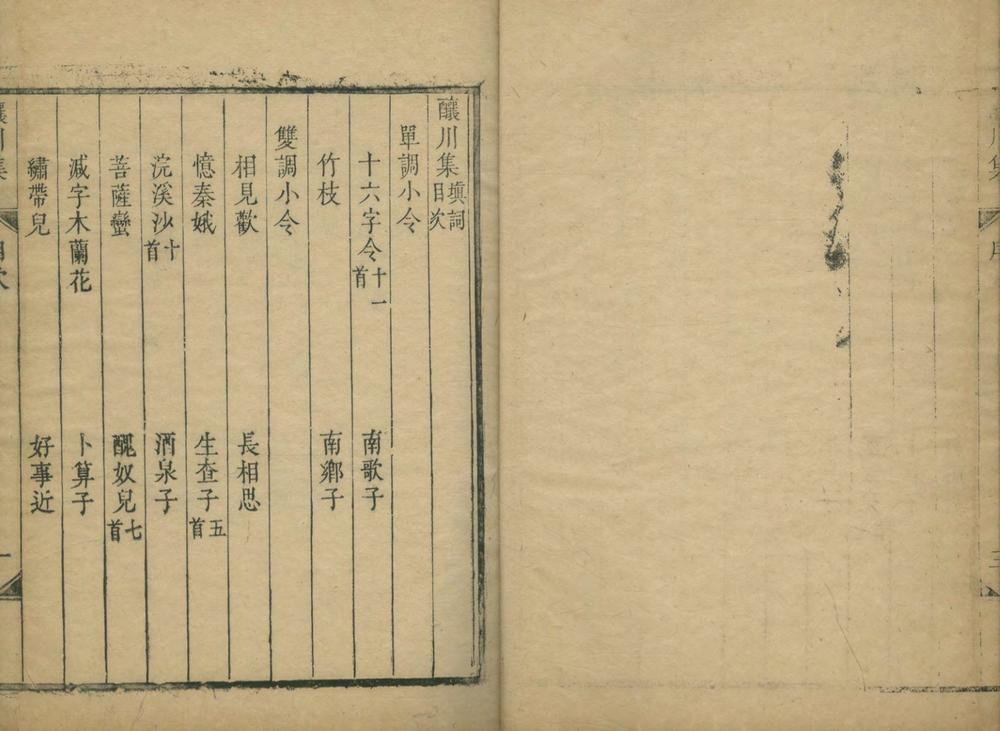 釀川集填詞目次
單調小令
十六字令十一首 南歌子
竹枝 南鄉子
雙調小令
相見歡 長相思
憶秦娥 生查子五首
浣溪沙十首 酒泉子
菩薩蠻 醜奴兒七首
減字木蘭花 卜算子
繡帶兒 好事近
釀川集 目次 一